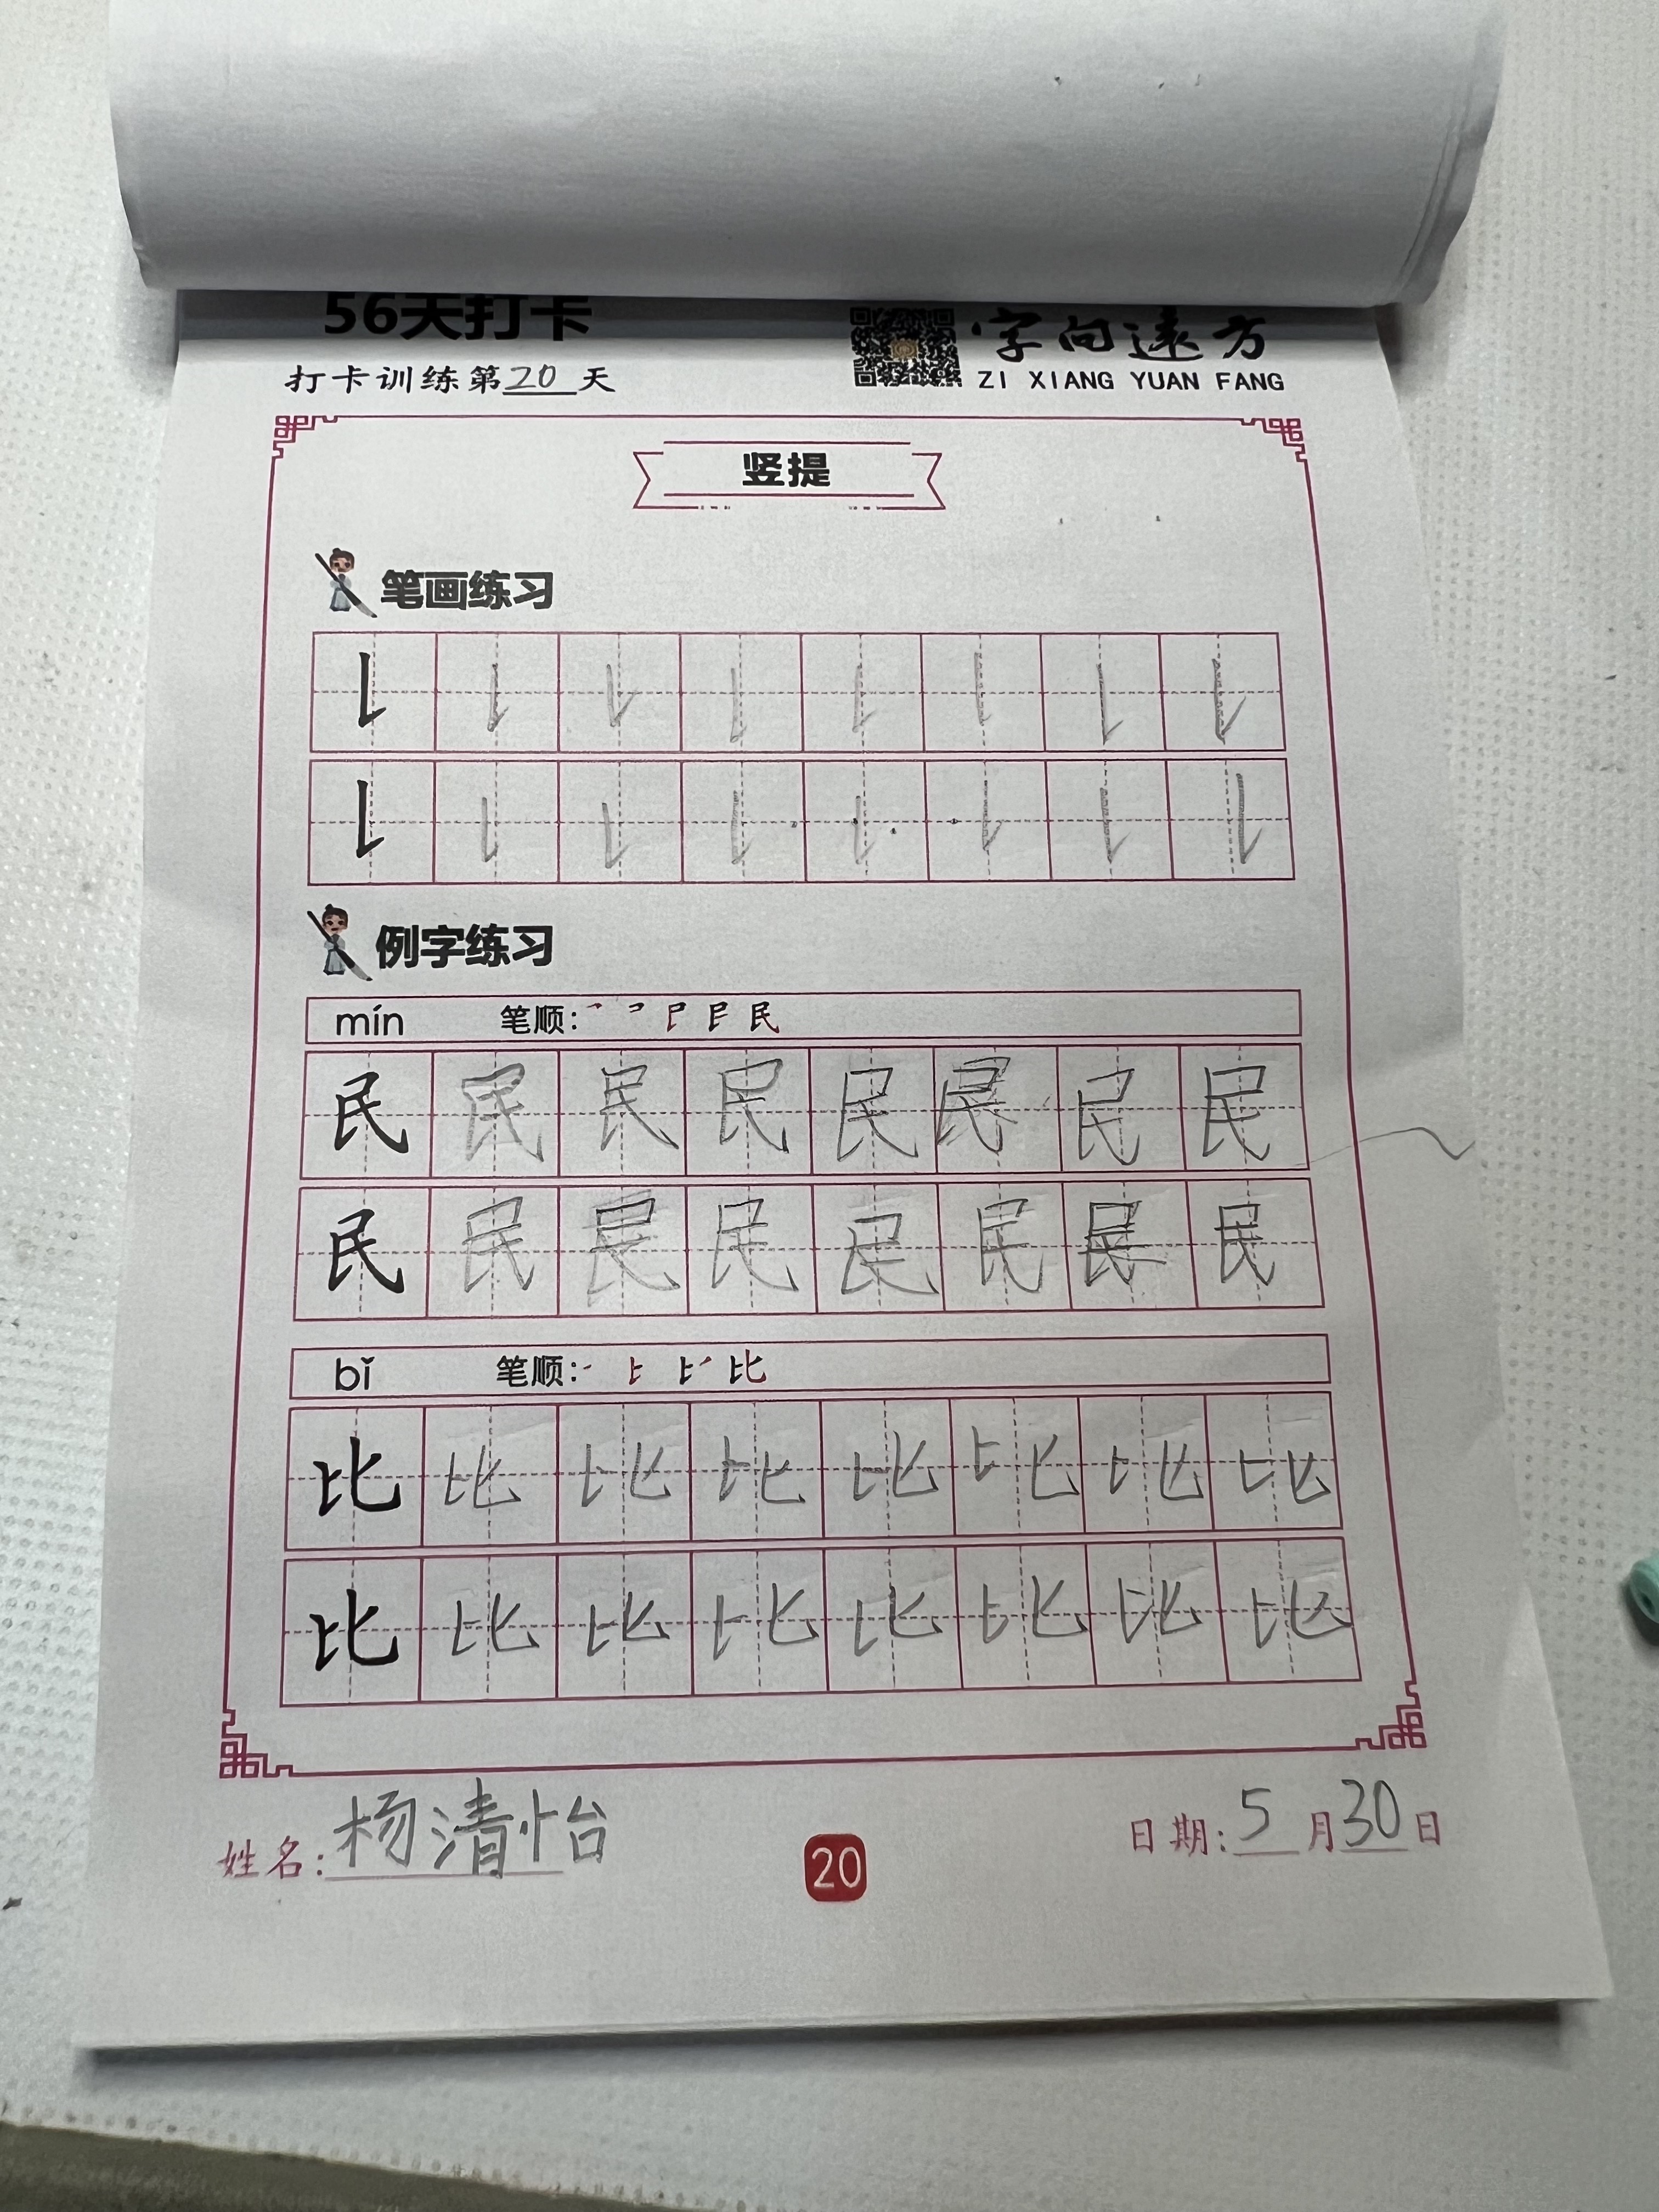 56天打卡
字向远方
打卡训练第20天
ZI XIANG YUAN FANG
竖提
笔画练习
例字练习
mín 笔顺: 民
民 民 民 民 民 民 民 民
民 民 民 民 民 民 民 民
bǐ 笔顺: 比
比 比 比 比 比 比 比 比
比 比 比 比 比 比 比 比
姓名: 杨清怡
20
日期: 5月30日